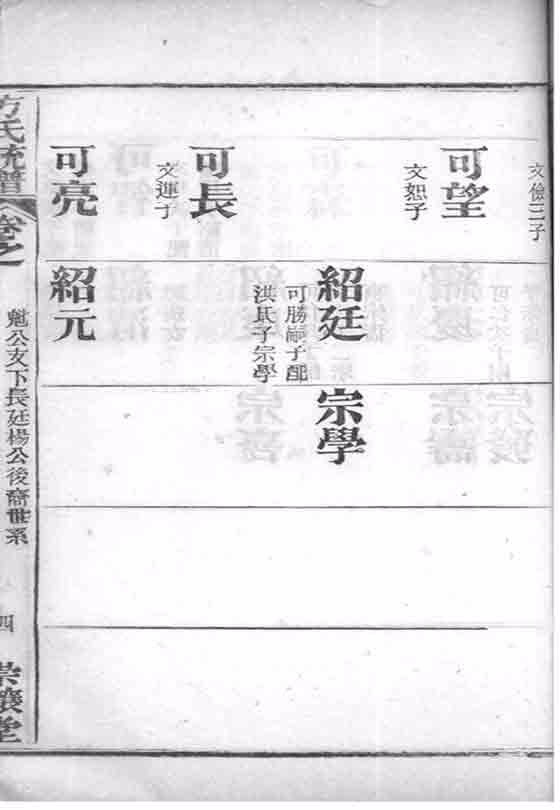 文儉三子
可望
文恕子
紹廷
可勝嗣子配
洪氏子宗學
宗學
可長
文運子
可亮
紹元
方氏統譜
卷之
魁公支下長廷楊公後裔世系
四